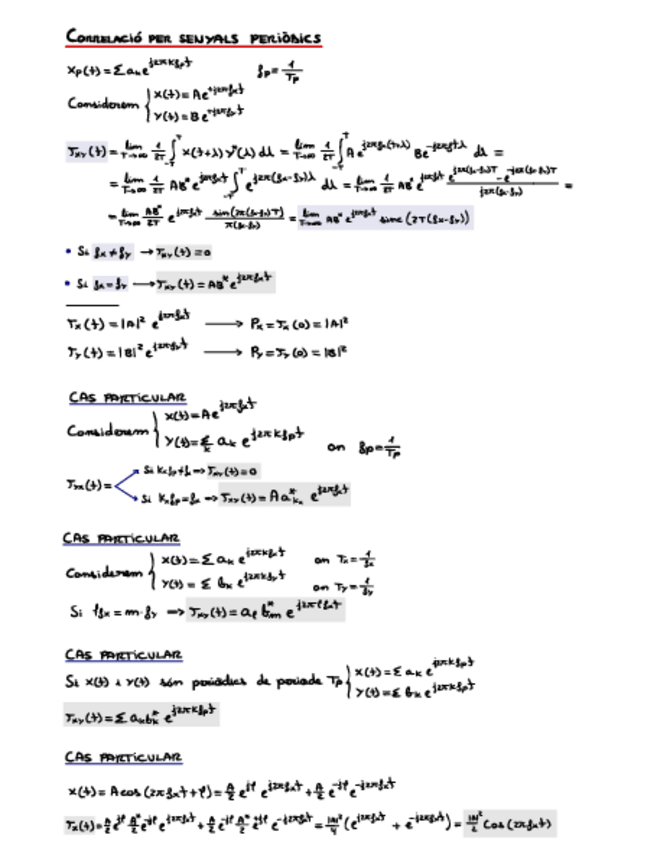 CORRELACIÓ PER SENYALS PERIÒDICS
Xp(t) = Σ aₖ e^{j2πkfpt}    fp = 1/Tp
Considerem { x(t) = A e^{+j2πfxt}
y(t) = B e^{+j2πfyt}
Γxy(t) = lim_{T→∞} 1/2T ∫_{-T}^{T} x(t+λ) y*(λ) dλ = lim_{T→∞} 1/2T ∫_{-T}^{T} A e^{j2πfx(t+λ)} B e^{-j2πfyλ} dλ =
= lim_{T→∞} 1/2T AB* e^{j2πfxt} ∫_{-T}^{T} e^{j2π(fx-fy)λ} dλ = lim_{T→∞} 1/2T AB* e^{j2πfxt} (e^{j2π(fx-fy)T} - e^{-j2π(fx-fy)T}) / j2π(fx-fy) =
= lim_{T→∞} AB*/2T e^{j2πfxt} sin(2π(fx-fy)T) / π(fx-fy) = lim_{T→∞} AB* e^{j2πfxt} sinc(2T(fx-fy))
• Si fx ≠ fy → Γxy(t) = 0
• Si fx = fy → Γxy(t) = AB* e^{j2πfxt}
Γx(t) = |A|² e^{j2πfxt} → Px = Γx(0) = |A|²
Γy(t) = |B|² e^{j2πfyt} → Py = Γy(0) = |B|²
CAS PARTICULAR
Considerem { x(t) = A e^{j2πfxt}
y(t) = Σₖ aₖ e^{j2πkfpt}    on fp = 1/Tp
Γyx(t) =
Si kₓfp ≠ fx → Γxy(t) = 0
Si kₓfp = fx → Γxy(t) = A a*ₖₓ e^{j2πfxt}
CAS PARTICULAR
Considerem { x(t) = Σ aₖ e^{j2πkfxt}    on Tx = 1/fx
y(t) = Σ bₖ e^{j2πkfyt}    on Ty = 1/fy
Si ℓfx = m·fy → Γxy(t) = aℓ b*m e^{j2πℓfxt}
CAS PARTICULAR
Si x(t) i y(t) són periòdics de període Tp { x(t) = Σ aₖ e^{j2πkfpt}
y(t) = Σ bₖ e^{j2πkfpt}
Γxy(t) = Σ aₖbₖ* e^{j2πkfpt}
CAS PARTICULAR
x(t) = A cos(2πfxt + φ) = A/2 e^{jφ} e^{j2πfxt} + A/2 e^{-jφ} e^{-j2πfxt}
Γx(t) = A/2 e^{jφ} A*/2 e^{-jφ} e^{j2πfxt} + A/2 e^{-jφ} A*/2 e^{jφ} e^{-j2πfxt} = |A|²/4 (e^{j2πfxt} + e^{-j2πfxt}) = |A|²/2 cos(2πfxt)